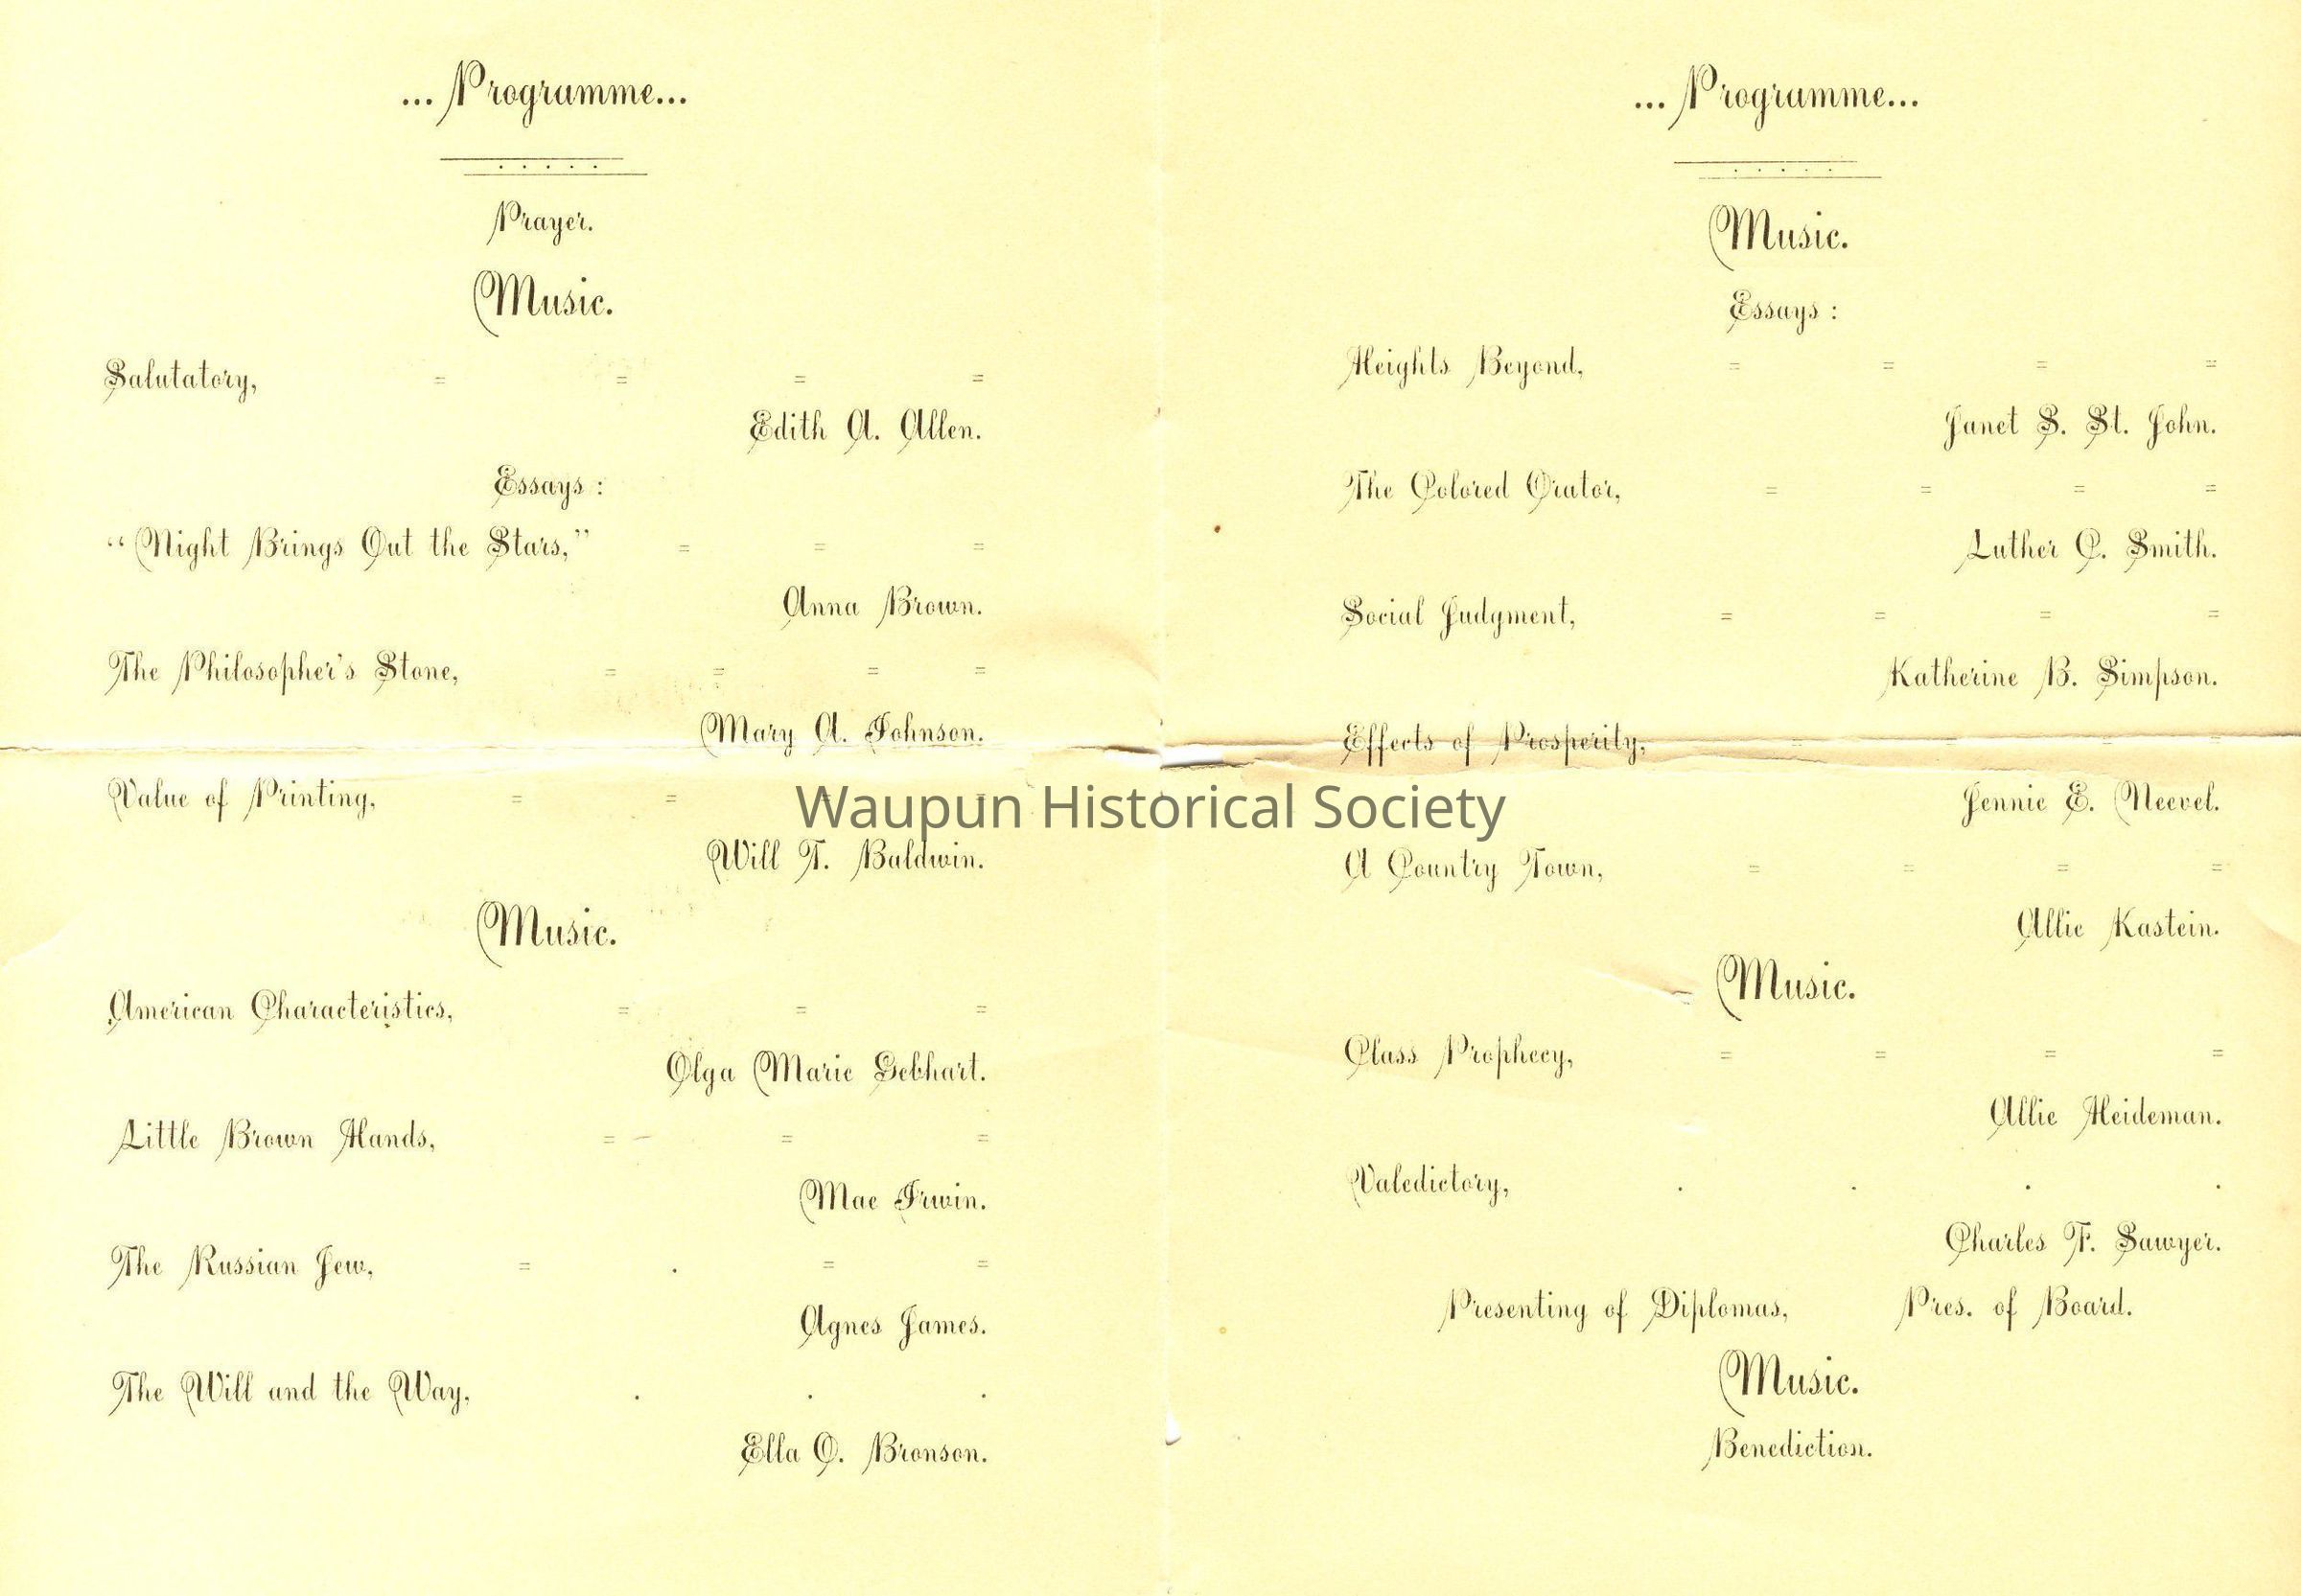 ... Programme...
Prayer.
Music.
Salutatory, = = = =
Edith A. Allen.
Essays :
“Night Brings Out the Stars,” = = =
Anna Brown.
The Philosopher's Stone, = = = =
Mary A. Johnson.
Value of Printing, = =
Will T. Baldwin.
Music.
American Characteristics, = = =
Olga Marie Gebhart.
Little Brown Hands, = = =
Mae Irwin.
The Russian Jew, = . = =
Agnes James.
The Will and the Way, . . .
Ella O. Bronson.
... Programme...
Music.
Essays :
Heights Beyond, = = = =
Janet S. St. John.
The Colored Orator, = = = =
Luther C. Smith.
Social Judgment, = = = =
Katherine B. Simpson.
Effects of Prosperity, = = = =
Jennie E. Neevel.
A Country Town, = = = =
Allie Kastein.
Music.
Class Prophecy, = = = =
Allie Heideman.
Valedictory, . . . .
Charles F. Sawyer.
Presenting of Diplomas, Pres. of Board.
Music.
Benediction.
Waupun Historical Society